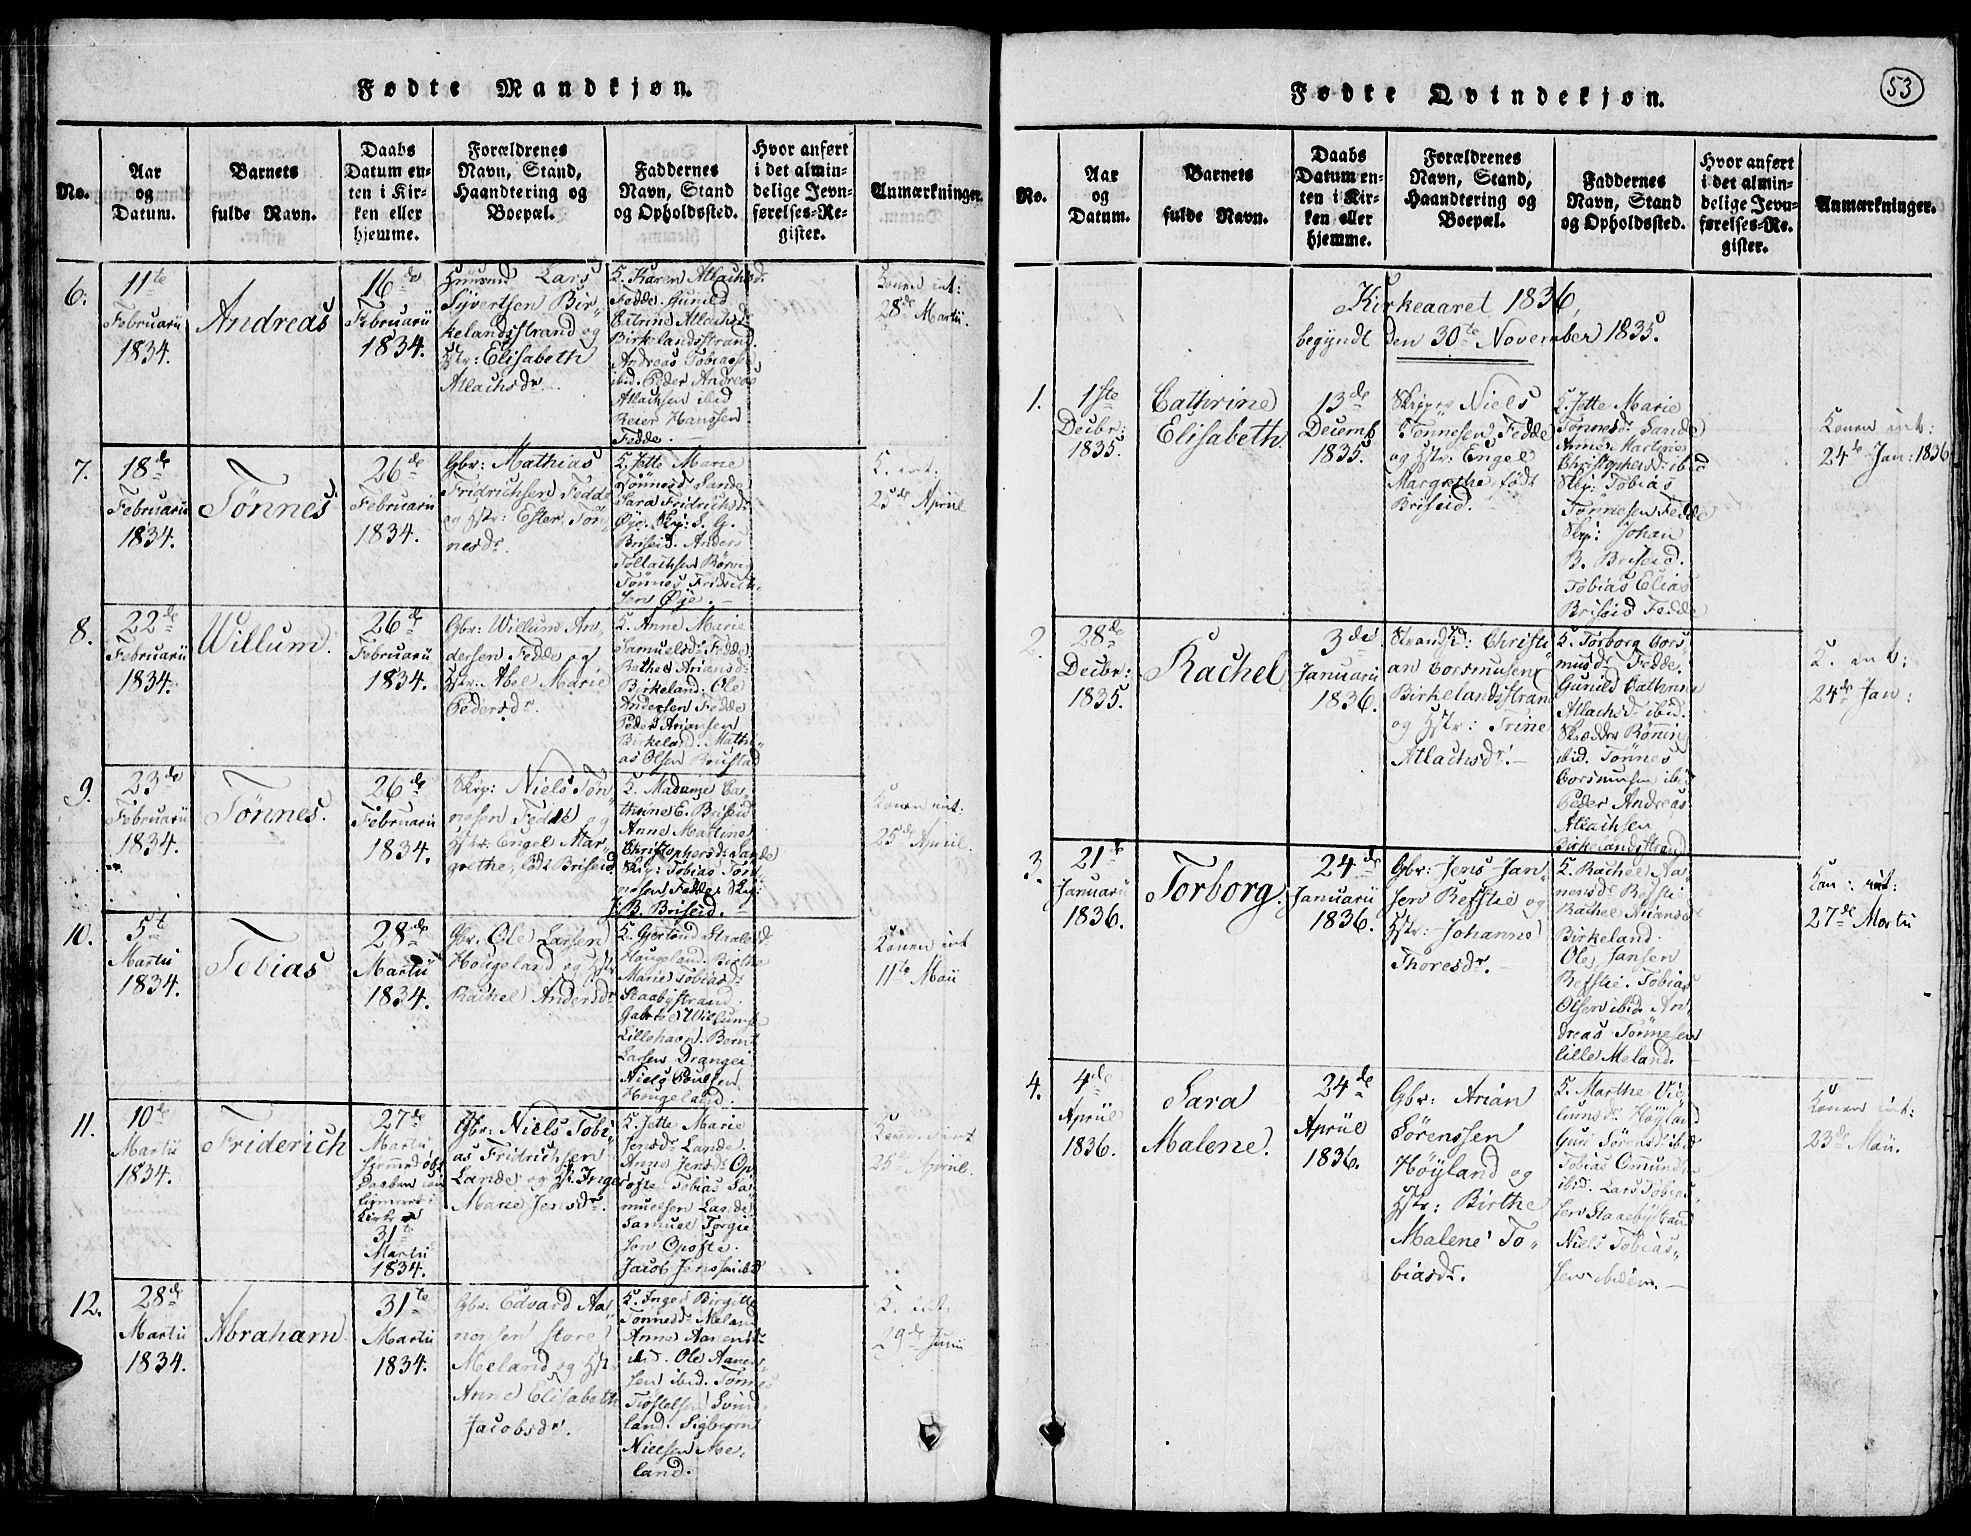 Fødte Mandkjøn.
No.
Aar
og
Datum.
Barnets
fulde Navn.
Daabs
Datum en-
ten i Kir-
ken eller
hjemme.
Forældrenes
Navn, Stand,
Haandtering og
Boepæl.
Faddernes
Navn, Stand
og Opholdssted.
Hvor anført
i det almin-
delige Jevn-
førelses-Re-
gister.
Anmærkninger.
6.
11te
Februarii
1834.
Andreas
16de
Februarii
1834.
Lars
Syvertsen Bir-
kelandsstrand og
Hstr: Elisabeth
Atlachsdr.
K. Karen Atlachsd.
Fedde. Gunild
Catrine Atlachsdr
Birkelandsstrand.
Andreas Tobiass
ibid. Peder Andreas
Atlachsen ibid
Reier Hanssen
Fedde.
Konen int:
28de Martii.
7.
18de
Februarii
1834.
Tønnes
26de
Februarii
1834.
Gbr: Mathias
Fridrichsen Fedde
og Hstr: Ester Tøn-
nesdr.
K. Jette Marie
Tønnesd Sande
Sara Fridrichsdr
Øye. Skp: S. G.
Briseid. Anders
Tollachsen Rørvig
Tønnes Fridrich-
sen Øje.
K. int.
25de Aprül
8.
22de
Februarii
1834.
Willum.
26de
Februarii
1834.
Gbr: Willum An-
dersen Fedde og
Hstr: Abel Marie
Pedersdr.
K. Anne Marie
Samuelsdr Fedde.
Bathe Ariansdr
Birkeland. Ole
Andersen Fedde
Peder Ariansen
Birkeland. Mathi-
as Olsen
9.
23de
Februarii
1834.
Tønnes.
26de
Februarii
1834.
Skip: Niels Tøn-
nesen Fedde og
Hstr: Engel Mar-
grethe, født Briseid
K. Madame Ca-
thrine E. Briseid
Anne Martine
Christophersdr Sande
Skip: Tobias Tøn-
nesen Fedde. Skip:
J. B. Briseid.
Konen int:
25de April.
10.
5t
Martii
1834.
Tobias
28de
Martii
1834.
Gbr. Ole Larsen
Hougeland og Hstr
Rachel Andersdr
K. Gjertrud
Haugeland. Berthe
Marie Tobiasdr
Staabystrand.
Gabriel Willums
Lillehavn. Bernt
Larsen Drangei
Niels Poulsen
Hougeland.
Konen int
11te Maii
11.
10de
Martii
1834.
Friderich
27de
Martii
hjemmedøbt
Daaben con-
firmeret i
Kirken
31te
Martii
1834.
Gbr: Niels Tobi-
as Fridrichsen
Lande og Hstr Inger
Marie Jensdr.
K. Jette Marie
Jensdr Lande.
Anne Jensdr Op-
ofte Tobias Sa-
muelsen Lande
Samuel Torgie
sen Opofte.
Jacob Jenssen ibid
Konen int
25de Aprül.
12.
28de
Martii
1834.
Abraham
31te
Martii
1834.
Gbr. Edvard Aa-
nensen store
Meland og Hstr
Anne Elisabeth
Jacobsdr.
K. Inger Birgitte
Tønnesdr Meland
Anne Aanensdr
ibid. Ole Aanens-
sen ibid. Tønnes
Trostelsen Svind-
land. Sigbjørn
Nielsen Me-
land.
K. int.
29de Junii
Fødte Qvindekjøn.
53
No.
Aar
og
Datum.
Barnets
fulde Navn.
Daabs
Datum en-
ten i Kir-
ken eller
hjemme.
Forældrenes
Navn, Stand,
Haandtering og
Boepæl.
Faddernes
Navn, Stand
og Opholdssted.
Hvor anført
i det almin-
delige Jevn-
førelses-Re-
gister.
Anmærkninger.
Kirkeaaret 1836,
begyndt den 30te November 1835.
1.
1ste
Decbr:
1835.
Cathrine
Elisabeth
13de
Decemb
1835.
Skipr Niels
Tønnesen Fedde
og Hstr: Engel
Margrethe, født
Briseid.
K. Jette Marie
Tønnesdr Sande
Anne Martine
Christophersd: ibid
Skp: Tobias
Tønnesen Fedde
Skp: Johan
B. Briseid.
Tobias Elias
Briseid Fedde
Konen int:
24de Jan: 1836
2.
28de
Decbr:
1835.
Rachel
3de
Januarii
1836.
Strands: Christi-
an Corsmusen
Birkelandsstrand
og Hstr: Trine
Atlachsdr.
K. Torborg Cors
musdr Fedde.
Gunild Cathrine
Atlachsd ibid.
Skrædder Rønning
ibid. Tønnes
Corsmusen ibid
Peder Andreas
Atlachsen
Birkelandsstrand
K. int:
24de Jan:
3.
21de
Januarii
1836.
Torborg.
24de
Januarii
1836.
Gbr: Jens Jan-
sen Refstie og
Hstr: Johanne
Thoresdr.
K. Rachel Aa-
nensdr Refsti
Rachel
Birkeland.
Ole Jansen
Refstie. Tobias
Olsen ibid. An-
dreas Tønnesen
lille Meland.
Kon: int:
27de Martii
4.
4de
Aprül
1836.
Sara
Malene.
24de
Aprül
1836.
Gbr: Arian
Sørenssen
Høyland og
Hstr: Birthe
Malene To-
biasdr.
K. Marthe
Høyland
Guri Sørensdr ibid
Tobias Omunds
ibid. Lars Tobias-
sen Staabystrand
Niels Tobias-
sen ibidem.
Konen int:
23de Maii.